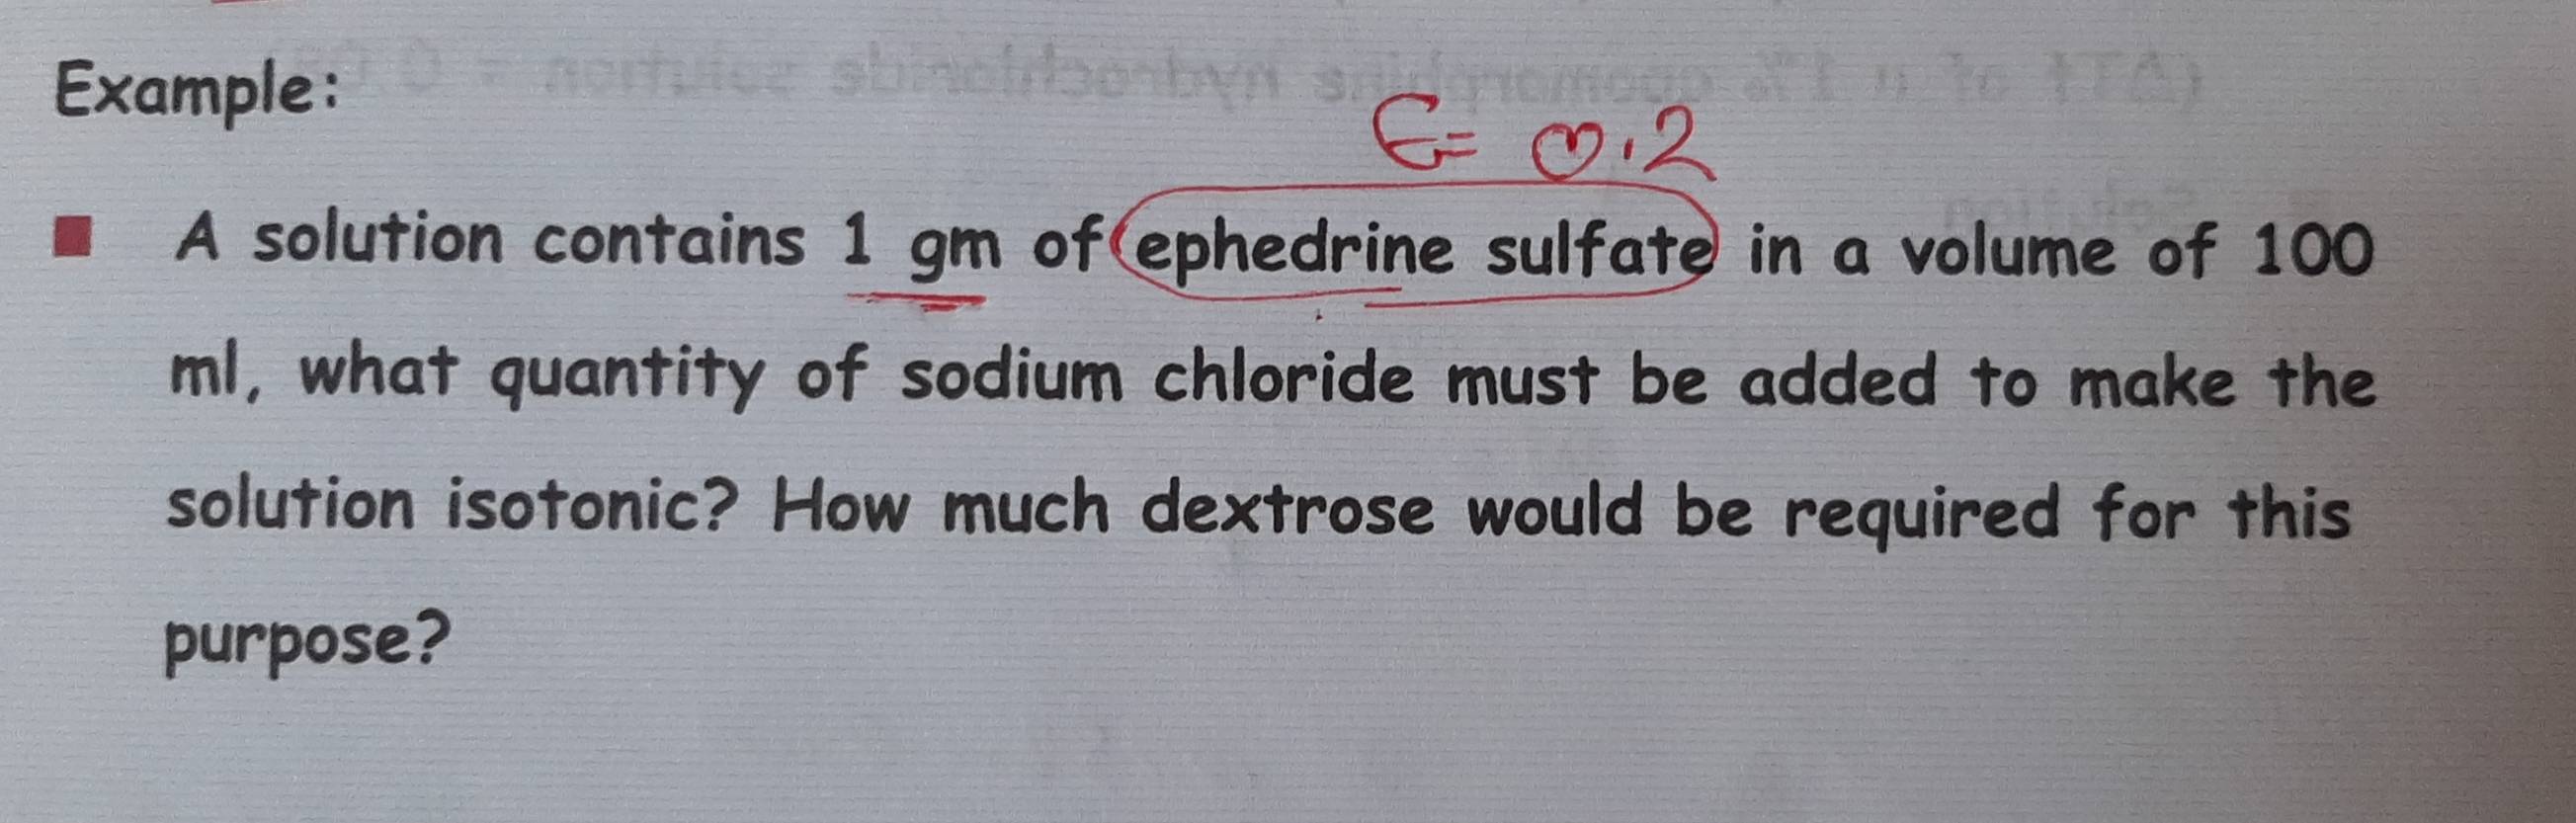 Example:
E= 0.2
A solution contains 1 gm of ephedrine sulfate in a volume of 100
ml, what quantity of sodium chloride must be added to make the
solution isotonic? How much dextrose would be required for this
purpose?